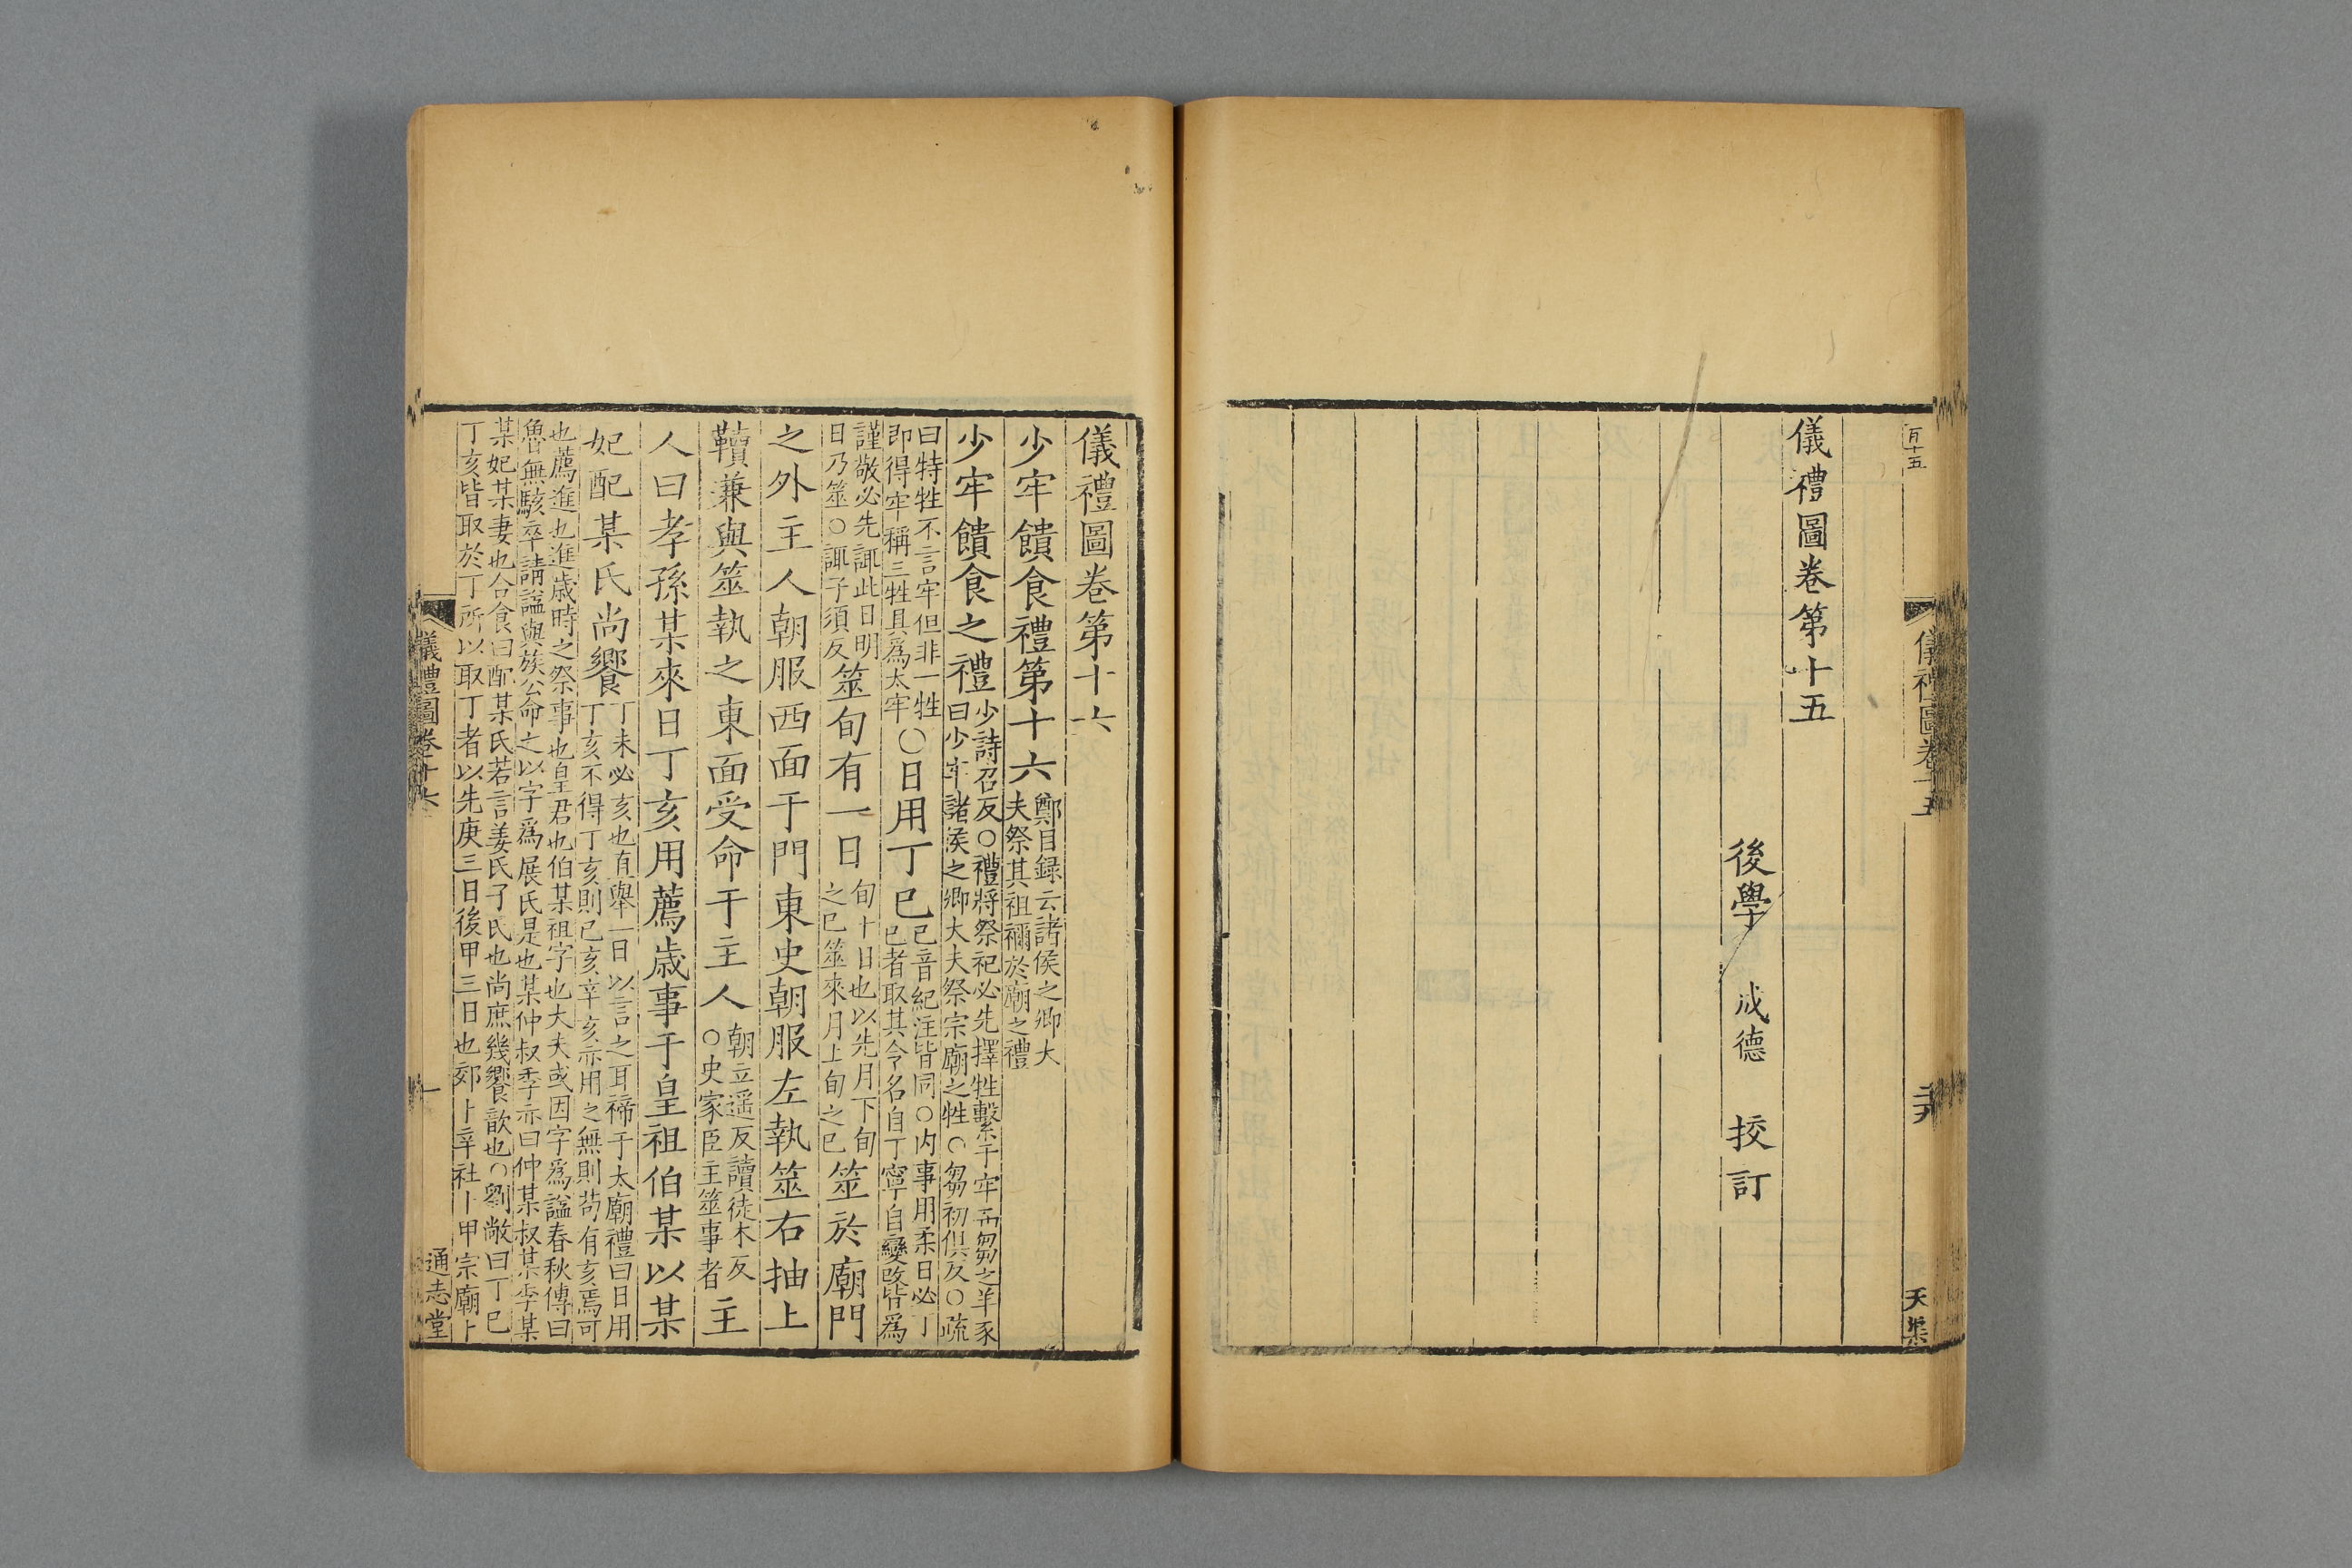 百十五
儀禮圖卷十五
天渠
儀禮圖卷第十五
後學 成德 挍訂
儀禮圖卷第十六
少牢饋食禮第十六
鄭目録云諸侯之卿大
夫祭其祖禰於廟之禮
少牢饋食之禮
少詩召反○禮將祭祀必先擇牲繫于牢而芻之羊豕
曰少牢諸侯之卿大夫祭宗廟之牲○芻初俱反○疏
曰特牲不言牢但非一牲
即得牢稱三牲具爲太牢
○日用丁巳
巳音紀注皆同○内事用柔日必丁
巳者取其令名自丁寧自變改皆爲
謹敬必先諏此日明
日乃筮○諏子須反
筮旬有一日
旬十日也以先月下旬
之巳筮來月上旬之巳
筮於廟門
之外主人朝服西面于門東史朝服左執筮右抽上
韇兼與筮執之東面受命于主人
朝立遥反韇徒木反
○史家臣主筮事者
主
人曰孝孫某來日丁亥用薦歳事于皇祖伯某以某
妃配某氏尚饗
丁未必亥也直舉一日以言之耳禘于太廟禮曰日用
丁亥不得丁亥則巳亥辛亥亦用之無則苟有亥焉可
也薦進也進歳時之祭事也皇君也伯某祖字也大夫或因字爲謚春秋傳曰
魯無駭卒請謚與族公命之以字爲展氏是也某仲叔季亦曰仲某叔某季某
某妃某妻也合食曰配某氏若言姜氏子氏也尚庶幾饗歆也○劉敞曰丁巳
丁亥皆取於丁所以取丁者以先庚三日後甲三日也郊卜辛社卜甲宗廟卜
儀禮圖卷十六
一
通志堂